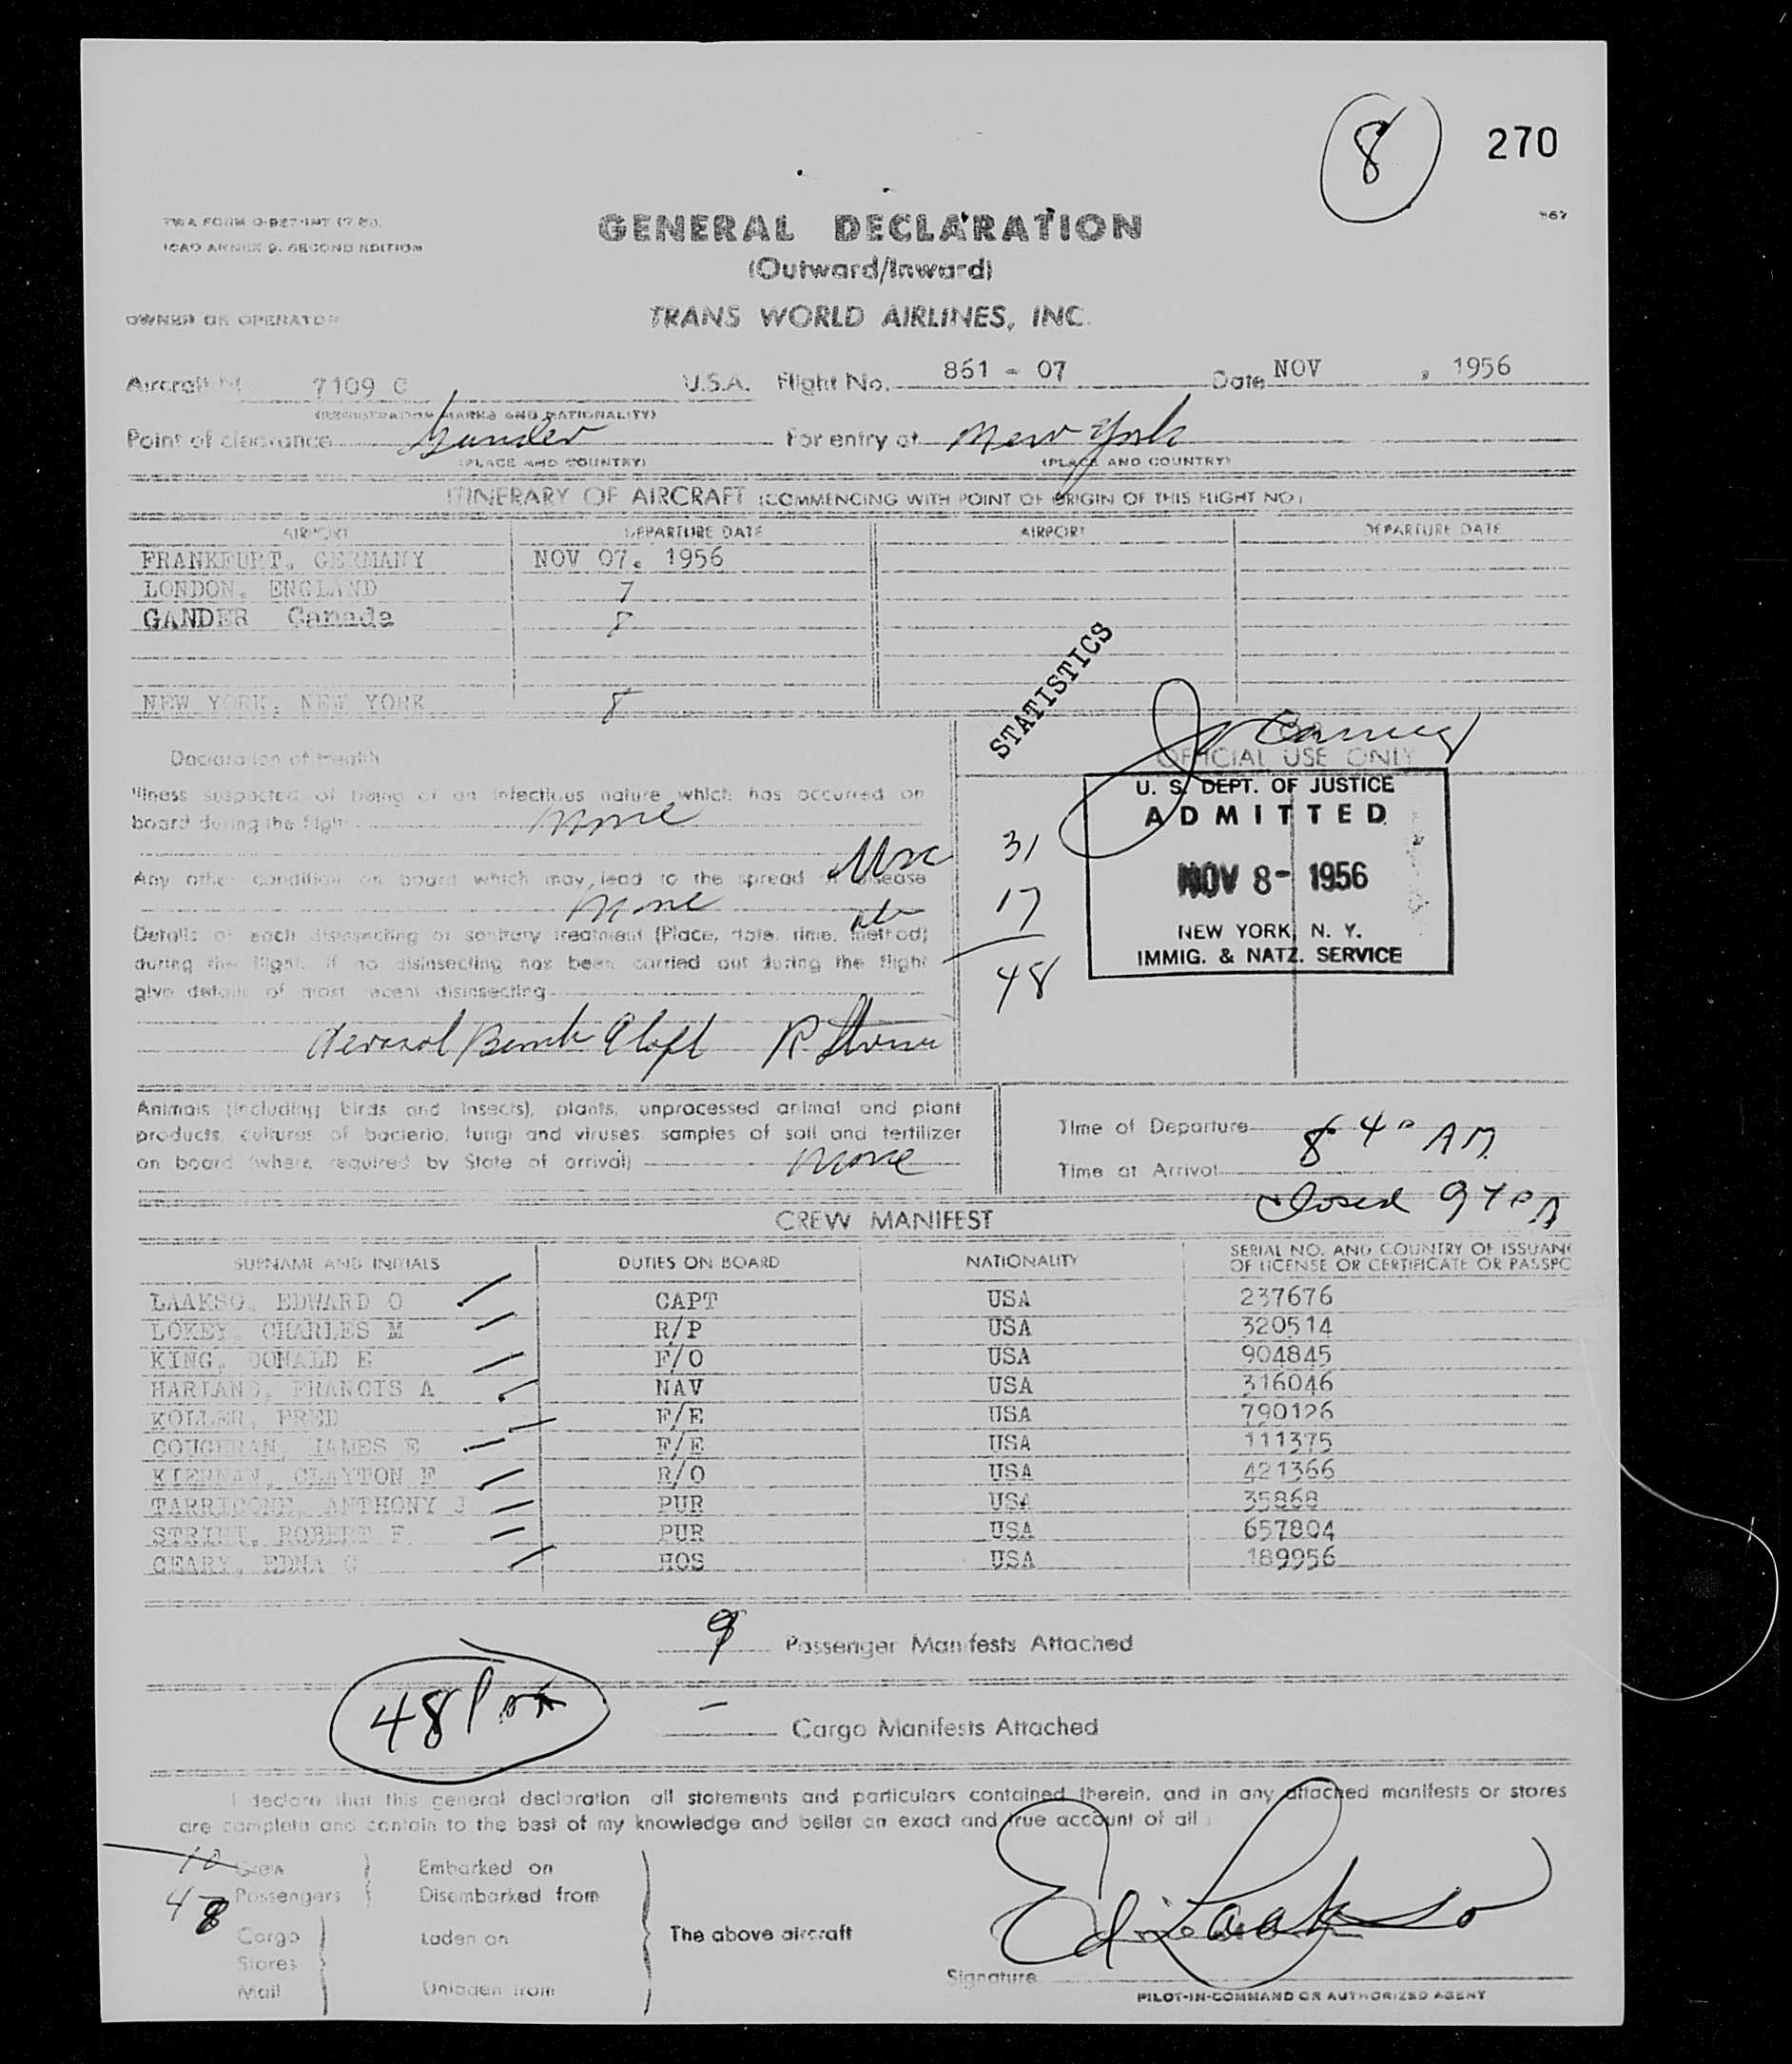 8 270
TWA FORM O-927-INT
ICAO ANNEX 9, SECOND EDITION
GENERAL DECLARATION
(Outward/Inward)
OWNER OR OPERATOR TRANS WORLD AIRLINES, INC.
Aircraft 7109 C U.S.A. Flight No. 861 - 07 Date NOV , 1956
(REGISTRATION MARKS AND NATIONALITY)
Point of clearance Gander For entry at New York
(PLACE AND COUNTRY) (PLACE AND COUNTRY)
ITINERARY OF AIRCRAFT (COMMENCING WITH POINT OF ORIGIN OF THIS FLIGHT NO)
AIRPORT DEPARTURE DATE AIRPORT DEPARTURE DATE
FRANKFURT, GERMANY NOV 07. 1956
LONDON, ENGLAND 7
GANDER Canada 8
NEW YORK, NEW YORK 8
STATISTICS
Declaration of Health
OFFICIAL USE ONLY
Illness suspected of being of an infectious nature which has occurred on
board during the flight None
Any other condition on board which may lead to the spread of disease
None
Details of each disinsecting or sanitary treatment (Place, date, time, method)
during the flight. If no disinsecting has been carried out during the flight
give details of most recent disinsecting
Aerosol Bomb Aloft
31
17
48
U. S. DEPT. OF JUSTICE
ADMITTED
NOV 8- 1956
NEW YORK, N. Y.
IMMIG. & NATZ. SERVICE
Animals (including birds and insects), plants, unprocessed animal and plant
products, cultures of bacteria, fungi and viruses, samples of soil and fertilizer
on board (where required by State of arrival) None
Time of Departure 8 40 AM
Time at Arrival
closed 940 A
CREW MANIFEST
SURNAME AND INITIALS DUTIES ON BOARD NATIONALITY SERIAL NO. AND COUNTRY OF ISSUANC
OF LICENSE OR CERTIFICATE OR PASSPO
LAAKSO, EDWARD O CAPT USA 237676
LOKEY, CHARLES M R/P USA 320514
KING, DONALD E F/O USA 904845
HARTAND, FRANCIS A NAV USA 316046
KOLLER, FRED F/E USA 790126
COUGHRAN, JAMES E F/E USA 111375
KIERNAN, CLAYTON F R/O USA 421366
TARRICONE, ANTHONY J PUR USA 35868
STRINI, ROBERT F PUR USA 657804
GEARY, EDNA C HOS USA 189956
9 Passenger Manifests Attached
48 Pax
- Cargo Manifests Attached
I declare that this general declaration all statements and particulars contained therein, and in any attached manifests or stores
are complete and contain to the best of my knowledge and belief an exact and true account of all :
10 Crew Embarked on
48 Passengers Disembarked from
Cargo Laden on The above aircraft
Stores
Mail Unladen from
Ed Laakso
Signature
PILOT-IN-COMMAND OR AUTHORIZED AGENT